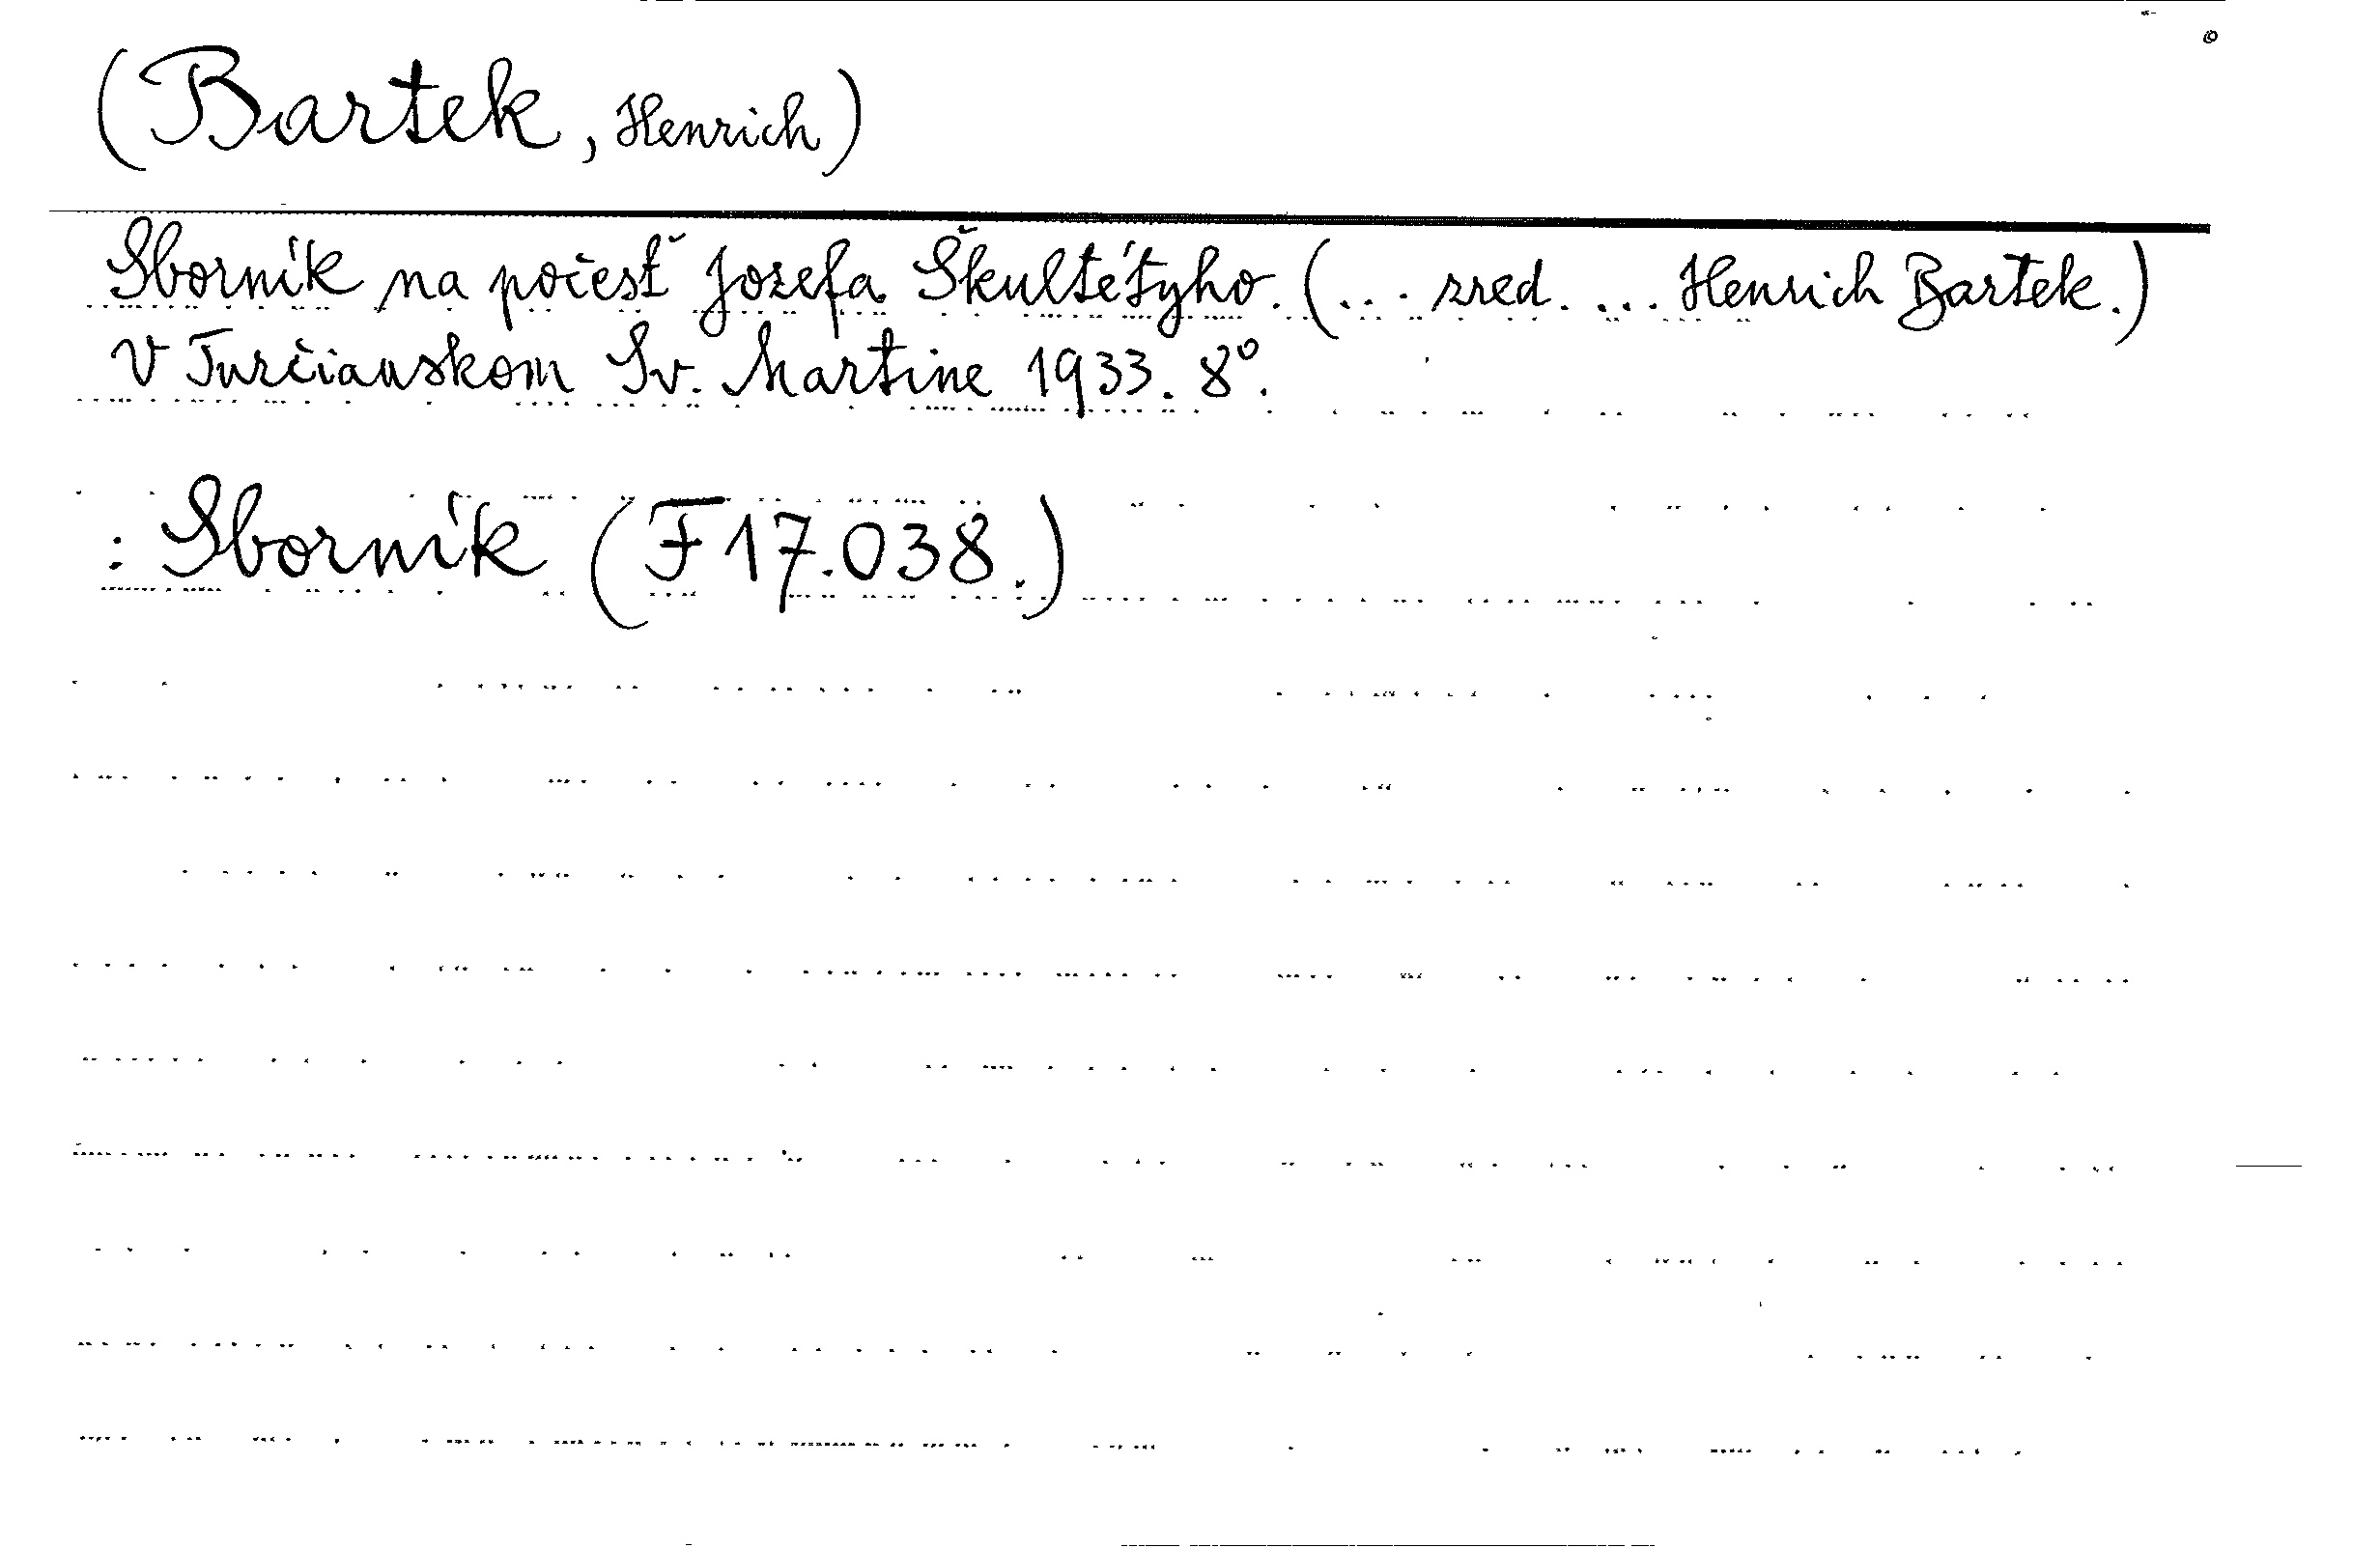 (Bartek, Henrich)
Sborník na počesť Jozefa Škultétyho. (... zred. ... Henrich Bartek.)
V Turčianskom Sv. Martine 1933. 8°.
: Sborník (F 17.038.)